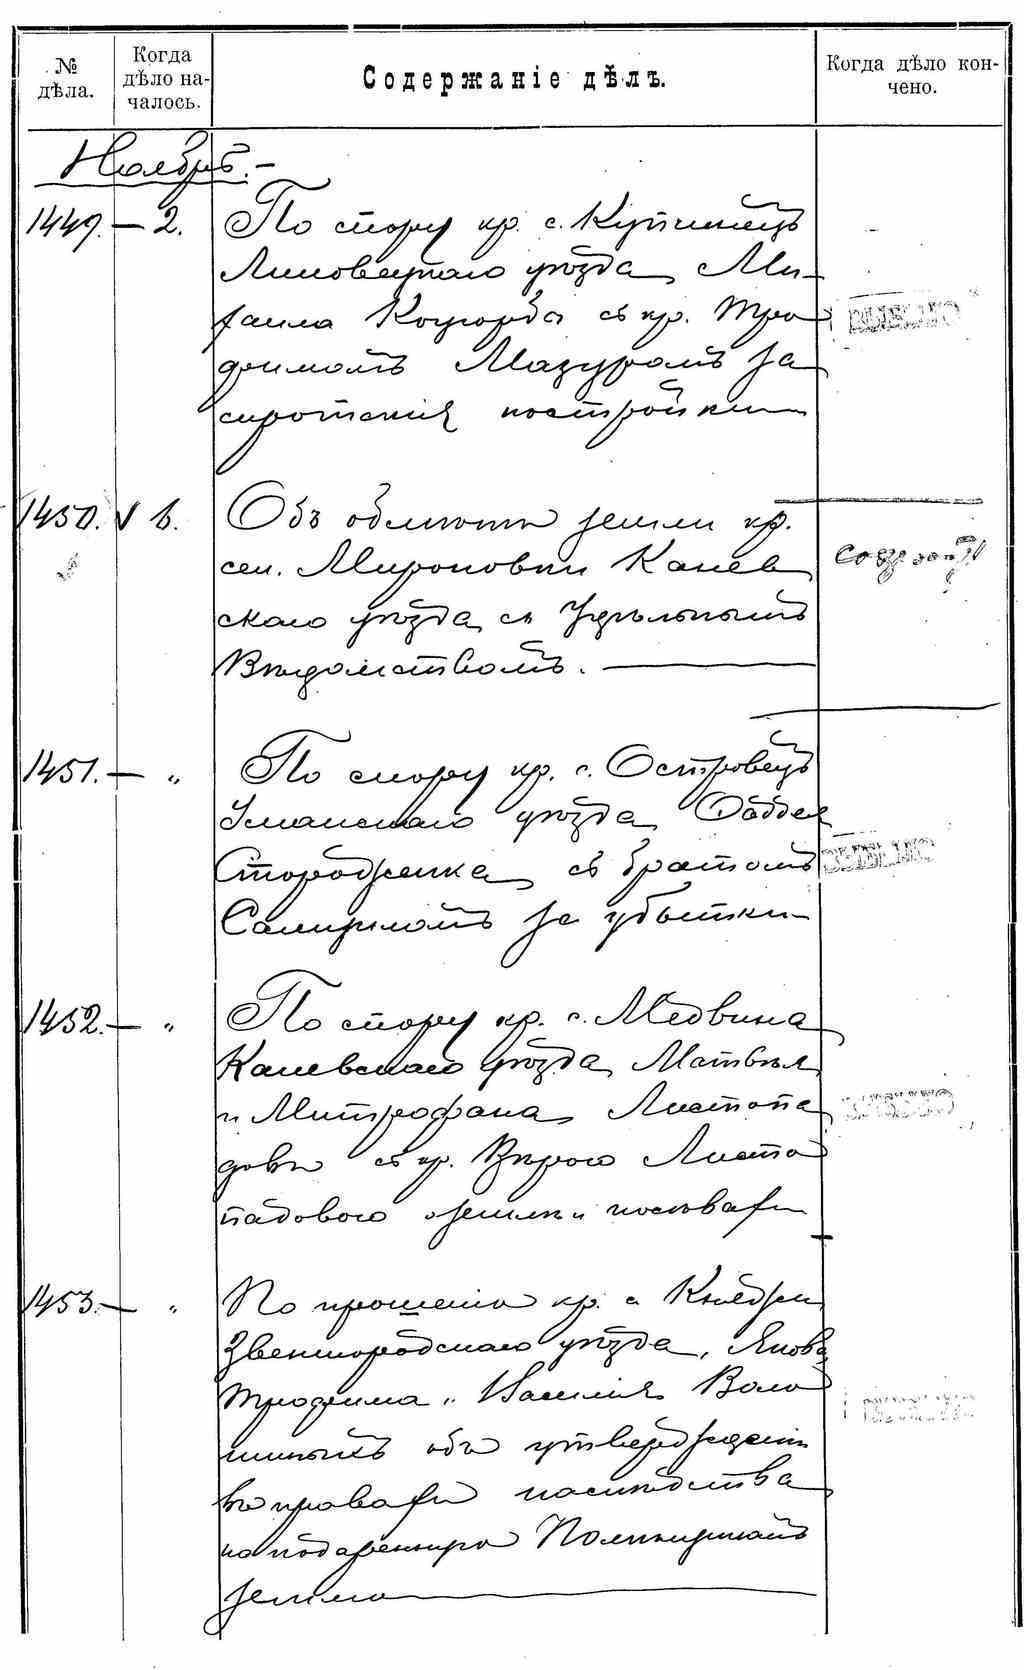 № дѣла.
Когда дѣло на-
чалось.
Содержаніе дѣлъ.
Когда дѣло кон-
чено.
Ноябрь.-
1449. — 2. По спору кр. с. Купчинецъ
Липовецкаго уѣзда, Ми-
хаила съ кр. Тро
фимомъ Мазуромъ за
сиротскія постройки
1450. √ 6. Объ обмѣнѣ земли кр.
сел. Мироновки Канев
скаго уѣзда съ Удѣльнымъ
Вѣдомствомъ. —
1451. — „ По спору кр. с. Островецъ
Уманскаго уѣзда, Фаддея
Стороженка съ братомъ
за убытки
1452. — „ По спору кр. с. Медвина
Каневскаго уѣзда, Матвѣя
и Митрофана Листопа
довъ съ кр. Вѣрою Листо
падовою о землѣ и постройкахъ
1453. — „ По прошенію кр. с.
Звенигородскаго уѣзда, Якова,
Трофима и Василія Воло
шиныхъ объ утвержденіи
въ правахъ наслѣдства
на подаренную
землю —